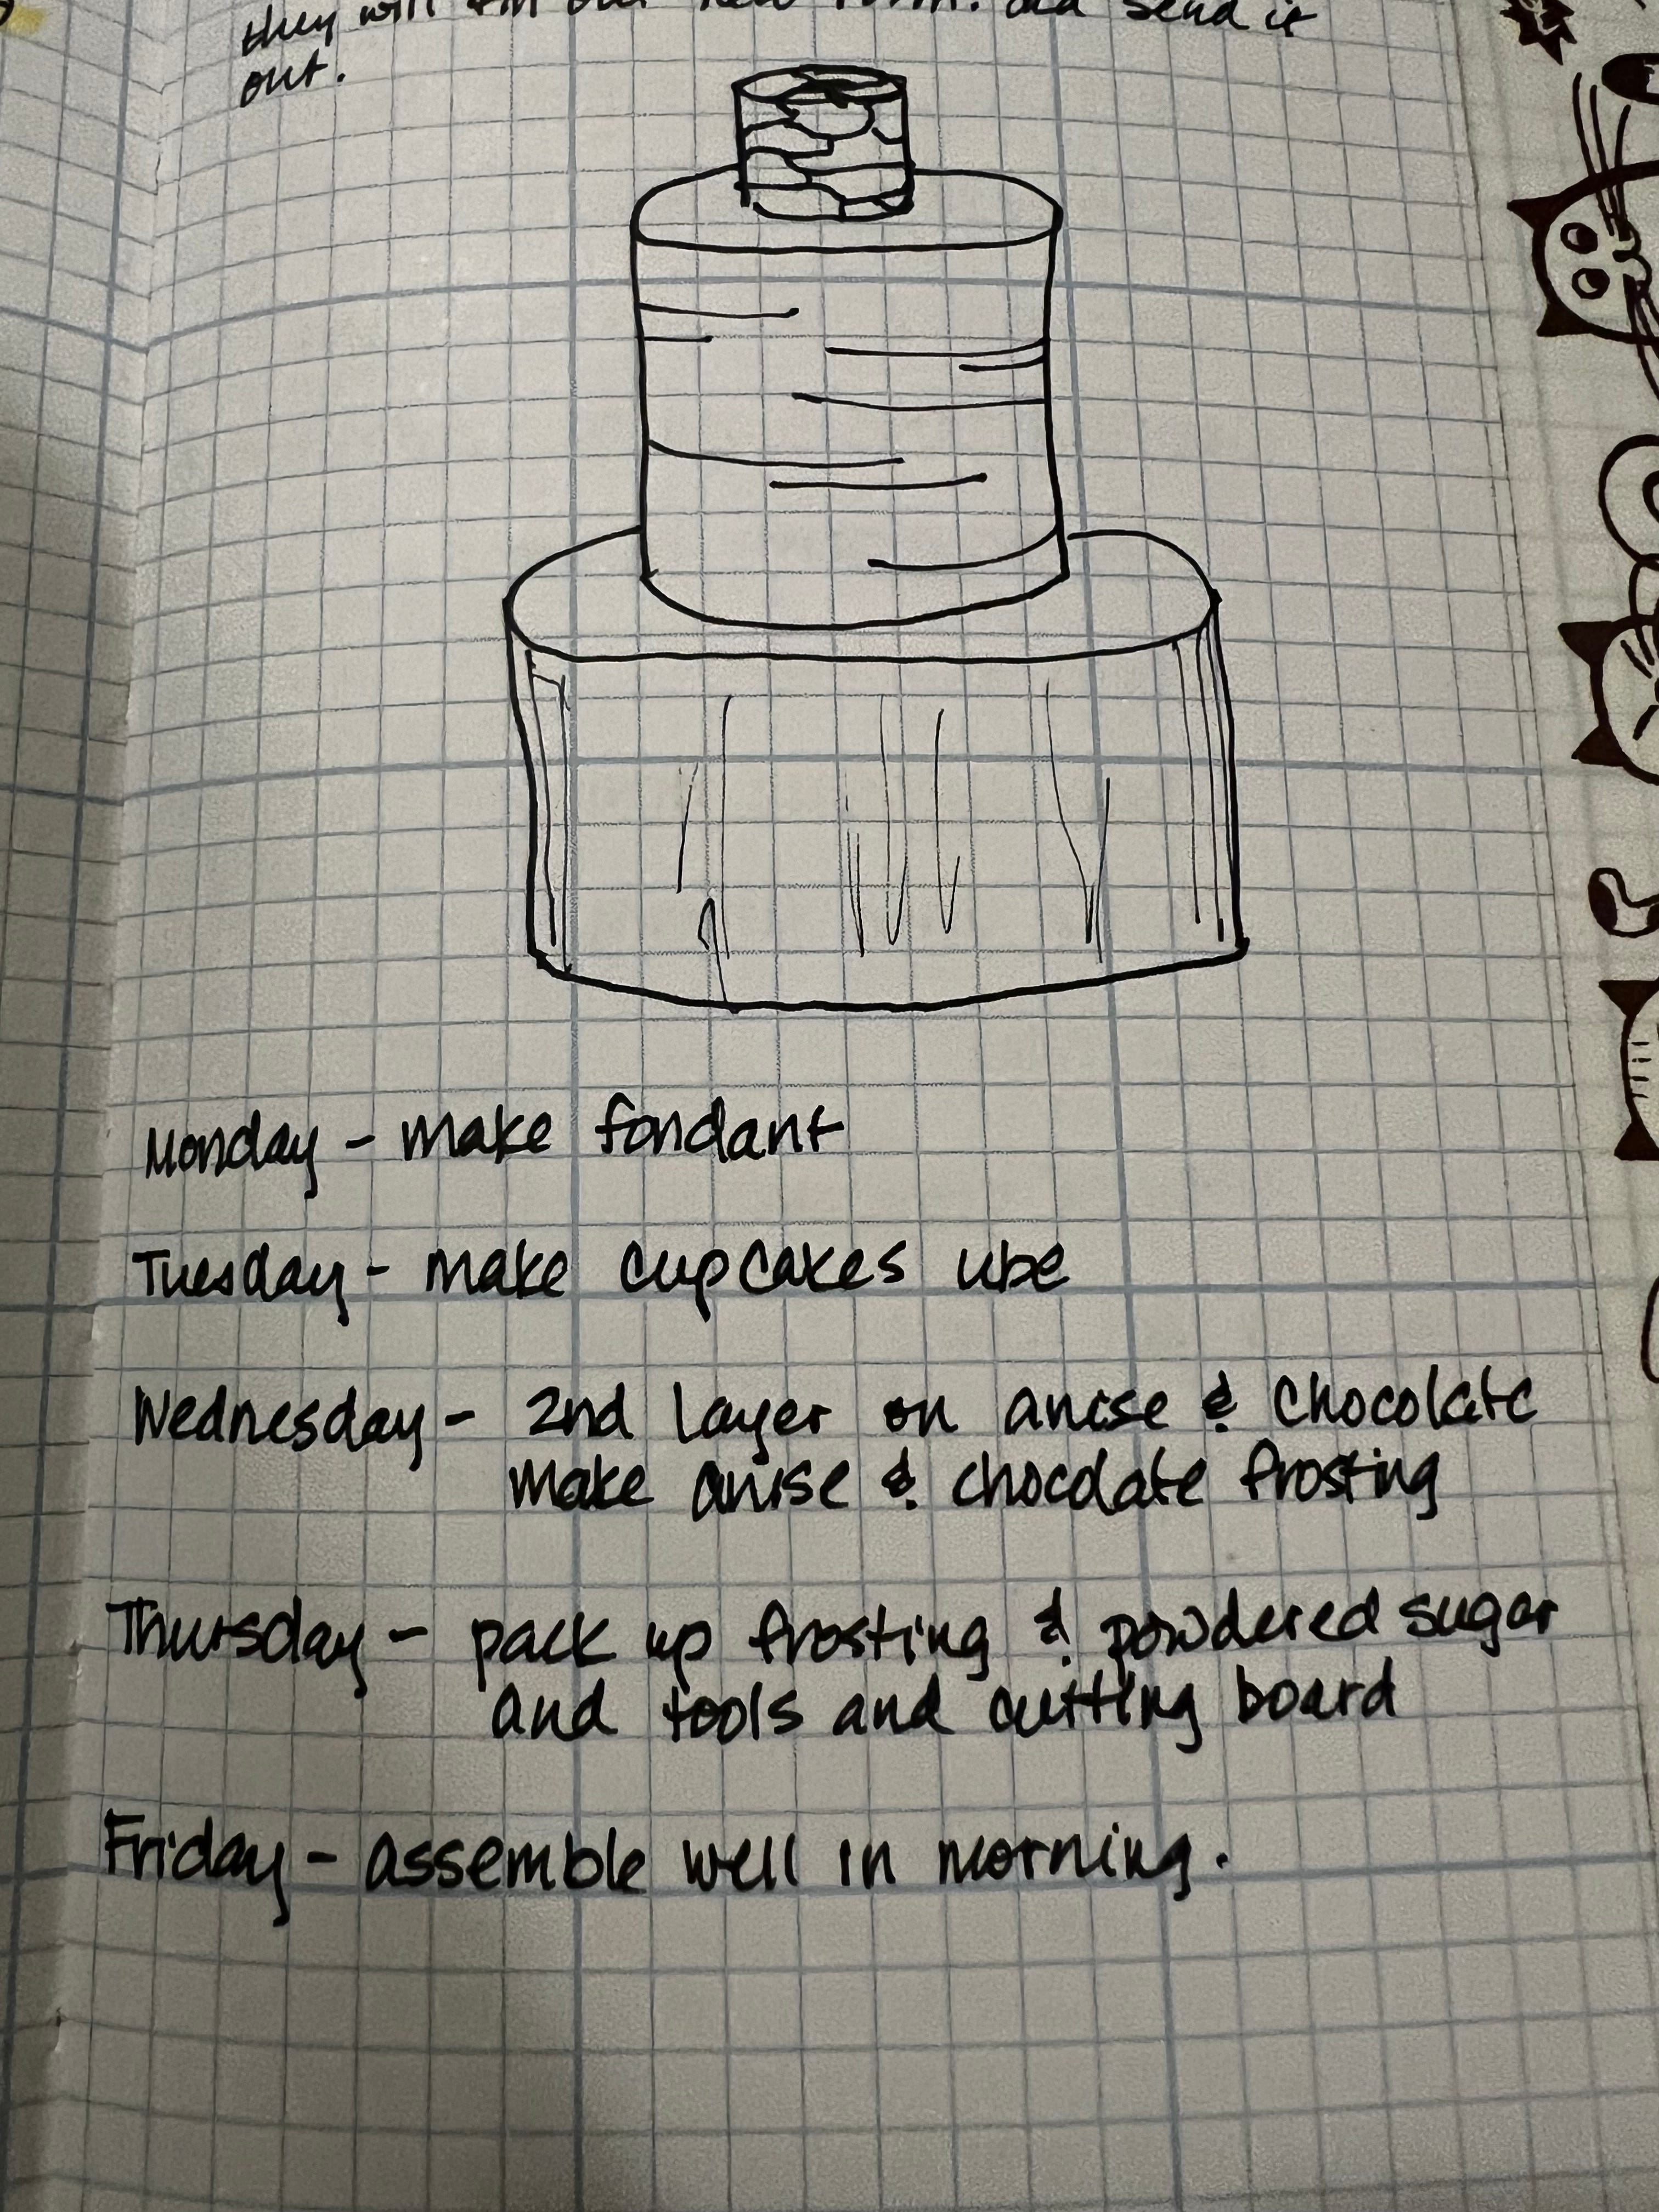 they will fill out new form. and send it
out.
Monday - make fondant
Tuesday - make cupcakes ube
Wednesday - 2nd layer on anise & chocolate
make anise & chocolate frosting
Thursday - pack up frosting & powdered sugar
and tools and cutting board
Friday - assemble well in morning.